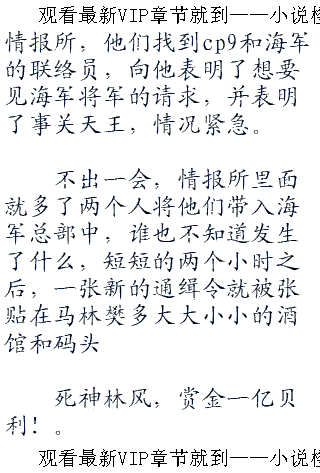 观看最新VIP章节就到——小说检
情报所，他们找到cp9和海军
的联络员，向他表明了想要
见海军将军的请求，并表明
了事关天王，情况紧急。
不出一会，情报所里面
就多了两个人将他们带入海
军总部中，谁也不知道发生
了什么，短短的两个小时之
后，一张新的通缉令就被张
贴在马林樊多大大小小的酒
馆和码头
死神林风，赏金一亿贝
利！。
观看最新VIP章节就到——小说检